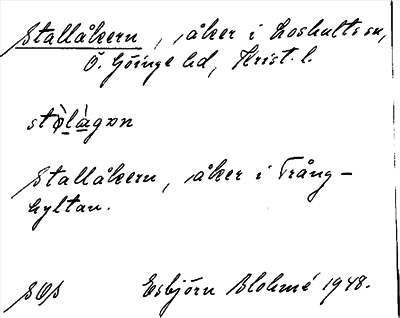 Stallåkern, åker i Loshults sn,
Ö. Göinge hd, Krist. l.
stò̱là̱gɔn
Stallåkern, åker i Trång-
hyltan.
SOS Esbjörn Blohmé 1948.